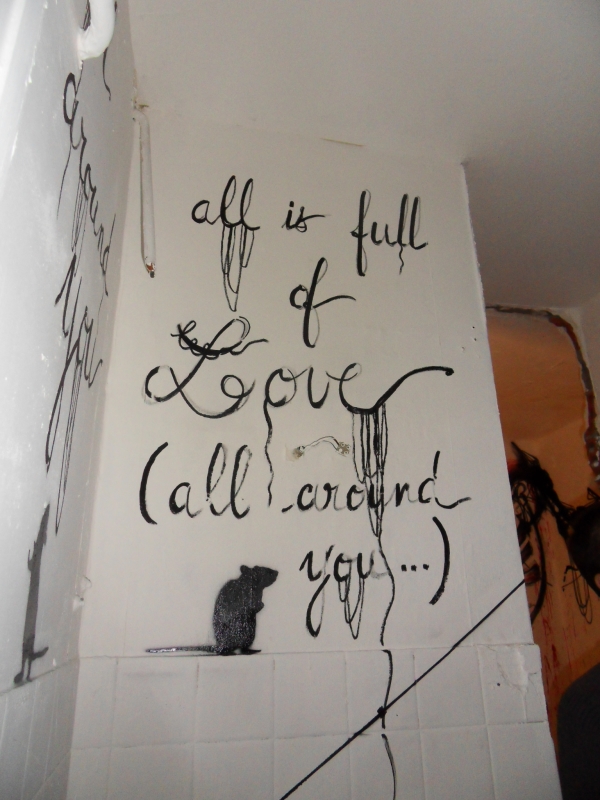 all is full
of
Love
(all around
you...)
around
you